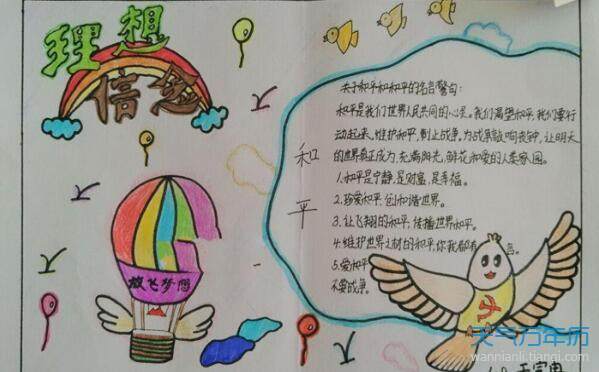 理想
信念
放飞梦想
和平
关于和平和和平的名言警句:
和平是我们世界人民共同的心灵。我们渴望和平,我们要行
动起来,维护和平,制止战争,为战争敲响丧钟,让明天
的世界真正成为充满阳光,鲜花和爱的人类家园。
1.和平是宁静,是财富,是幸福。
2.珍爱和平,创和谐世界。
3.让飞翔的和平,传播世界和平。
4.维护世界之林的和平,你我都有 色。
5.爱和平
不要战争。
天气万年历
wannianli.tianqi.com